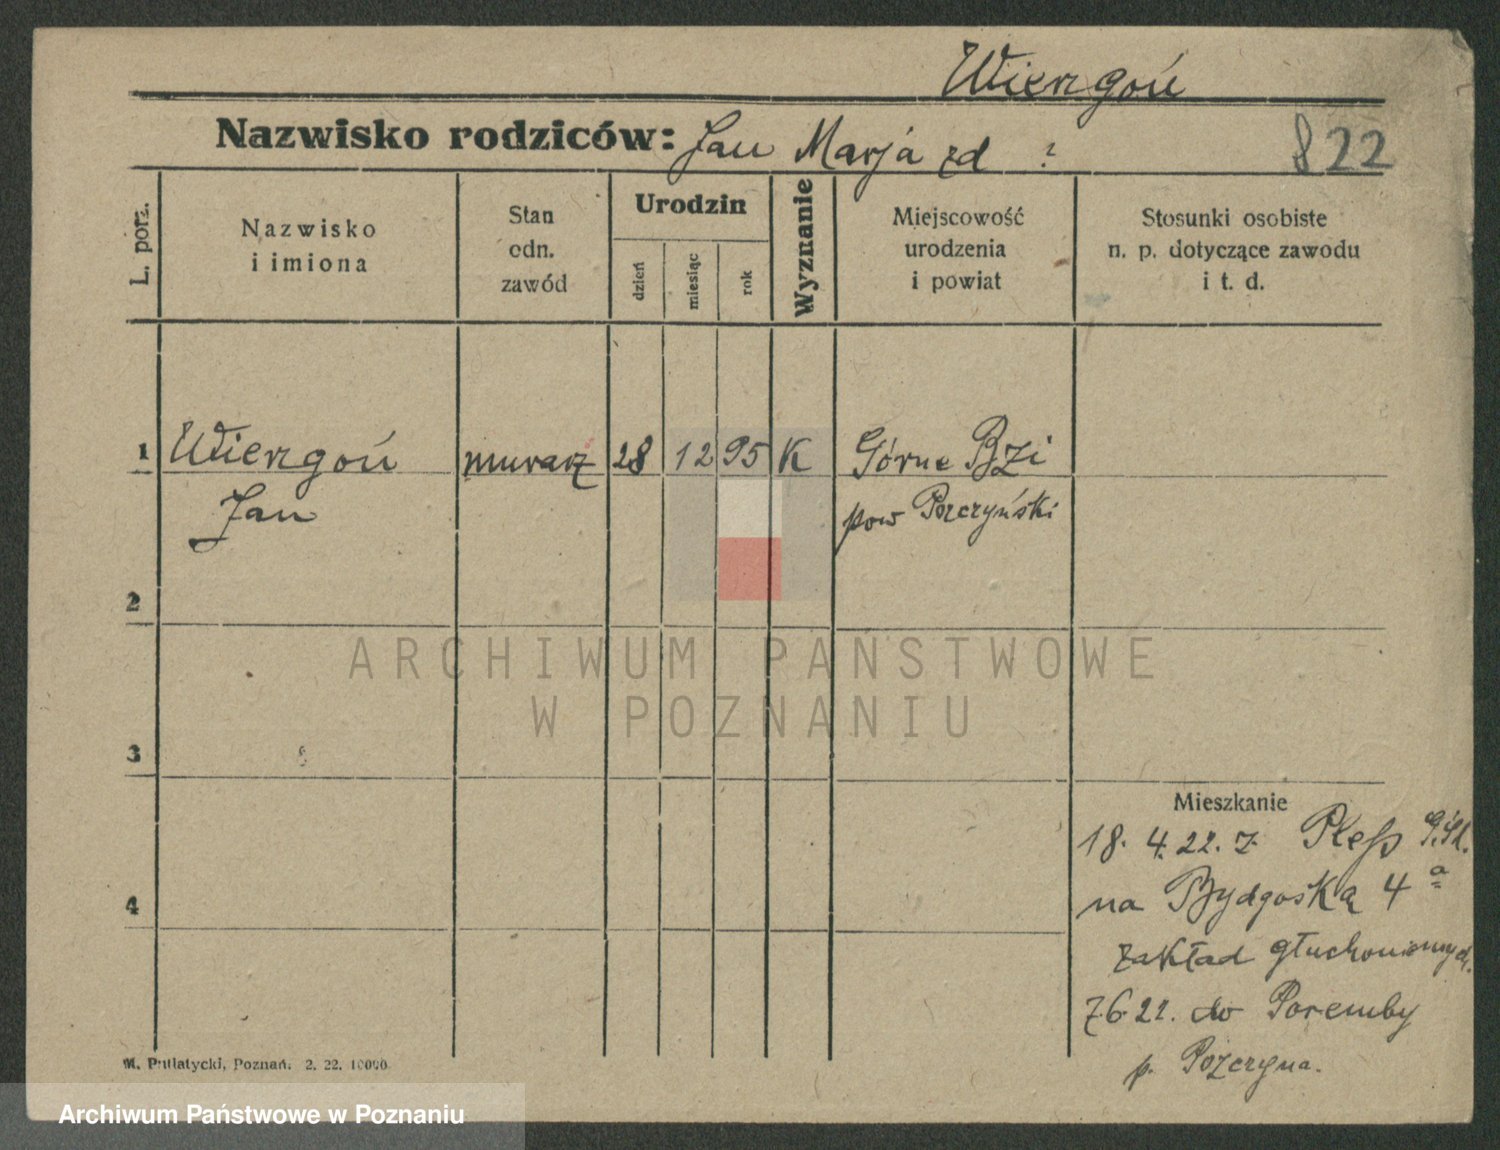 Wierzgoń
Nazwisko rodziców: Jan Marja zd ?
822
L. porz.
Nazwisko
i imiona
Stan
odn.
zawód
Urodzin
dzień
miesiąc
rok
Wyznanie
Miejscowość
urodzenia
i powiat
Stosunki osobiste
n. p. dotyczące zawodu
i t. d.
1 Wierzgoń murarz 28 12 95 K Górne BZi
Jan pow Pozczyński
2
ARCHIWUM PAŃSTWOWE
W POZNANIU
3
Mieszkanie
18. 4. 22. z Pless G.Śl.
na Bydgoską 4 a
4
zakład głuchoniemych.
7.6.22. do Poremby
p. Pozczyna.
M. Putiatycki, Poznań. 2. 22. 10000
Archiwum Państwowe w Poznaniu